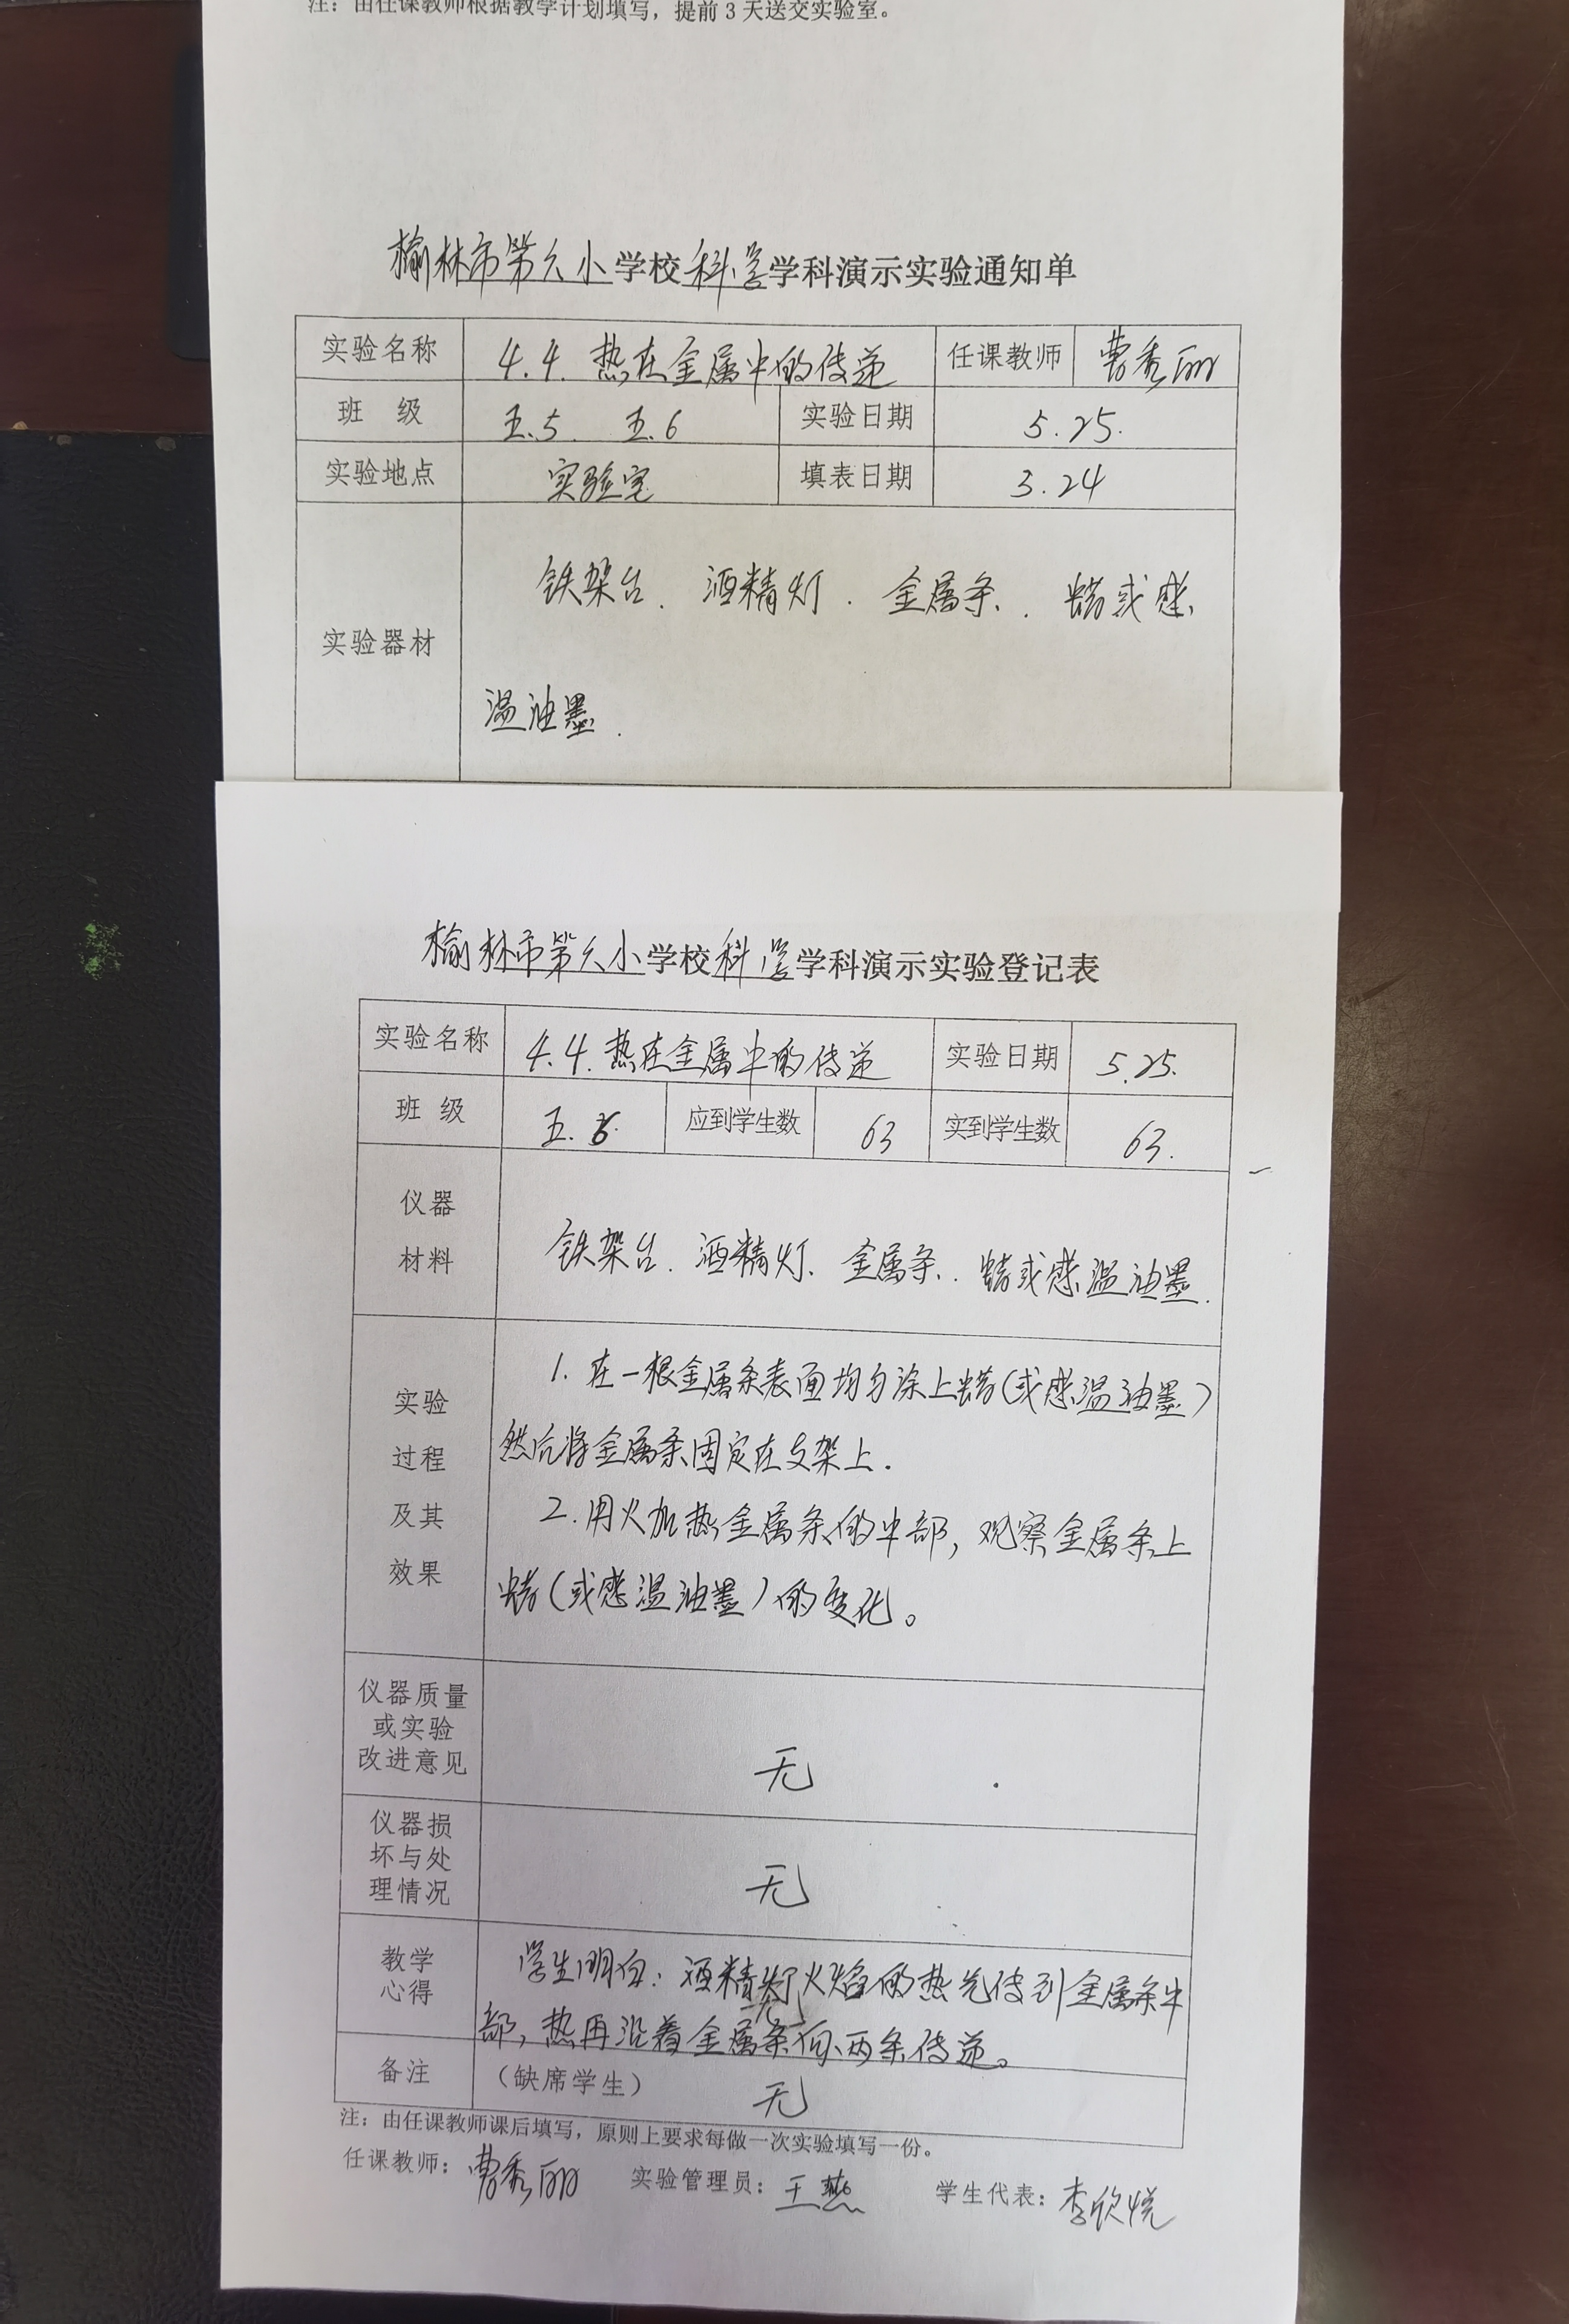 注：由任课教师根据教学计划填写，提前3天送交实验室。
榆林市第六小学校科学学科演示实验通知单
实验名称 4.4.热在金属中的传递 任课教师 曹秀丽
班 级 五.5 五.6 实验日期 5.25.
实验地点 实验室 填表日期 3.24
铁架台、酒精灯、金属条、蜡或感
实验器材
温油墨.
榆林市第六小学校科学学科演示实验登记表
实验名称 4.4.热在金属中的传递 实验日期 5.25.
班 级 五.6. 应到学生数 63 实到学生数 63.
仪器
材料
铁架台、酒精灯、金属条、蜡或感温油墨.
实验
过程
及其
效果
1. 在一根金属条表面均匀涂上蜡(或感温油墨)
然后将金属条固定在支架上.
2. 用火加热金属条的中部，观察金属条上
蜡(或感温油墨)的变化。
仪器质量
或实验
改进意见
无
仪器损
坏与处
理情况
无
教学
心得
学生明白：酒精灯火焰的热先传到金属条中
部，热再沿着金属条向两条传递。
备注 （缺席学生） 无
注：由任课教师课后填写，原则上要求每做一次实验填写一份。
任课教师：曹秀丽 实验管理员：王燕 学生代表：李欣悦